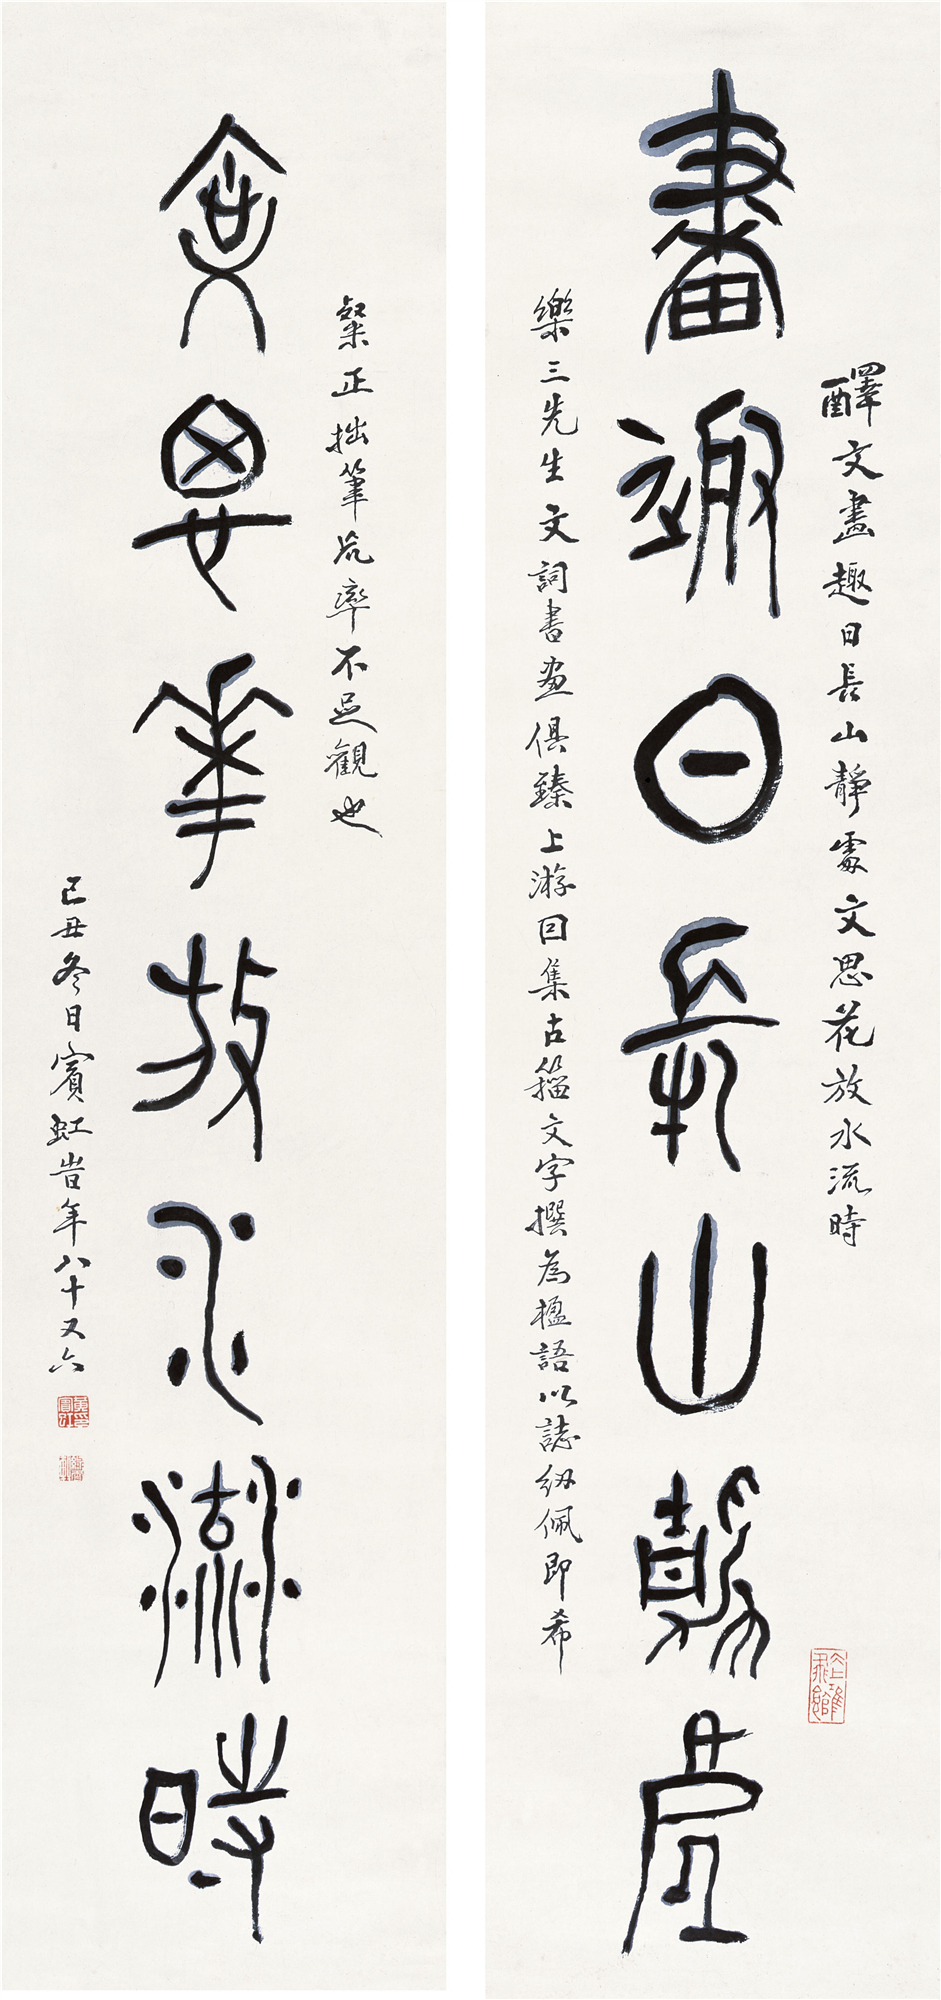 畫趣日長山靜處
醳文畫趣日長山靜處文思花放水流時
樂三先生文詞書畫俱臻上游因集古籀文字撰為楹語以誌紉佩即希
文思華放水流時
粲正拙筆荒率不足觀也
己丑冬日賓虹昔年八十又六
黃賓虹